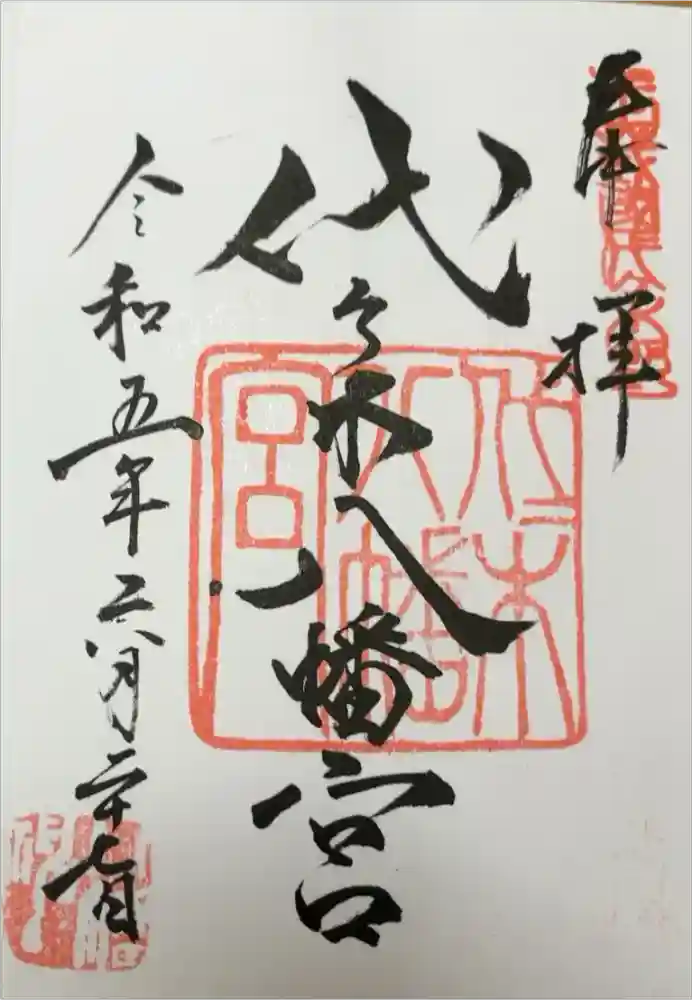 奉拝
代々木八幡宮
令和五年六月二十七日
代々木
八幡
宮